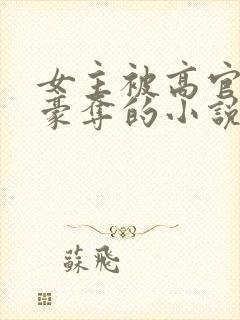 女主被高官
豪奪的小說
蘇飛